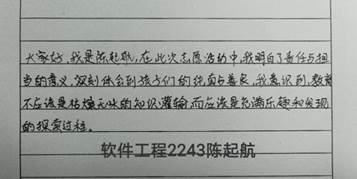 大家好，我是陈起航，在此次志愿活动中，我明白了责任与担
当的意义，深刻体会到孩子们的纯真与善良，我意识到，教育
不应该是枯燥无味的知识灌输，而应该是充满乐趣和发现
的探索过程。
软件工程2243陈起航